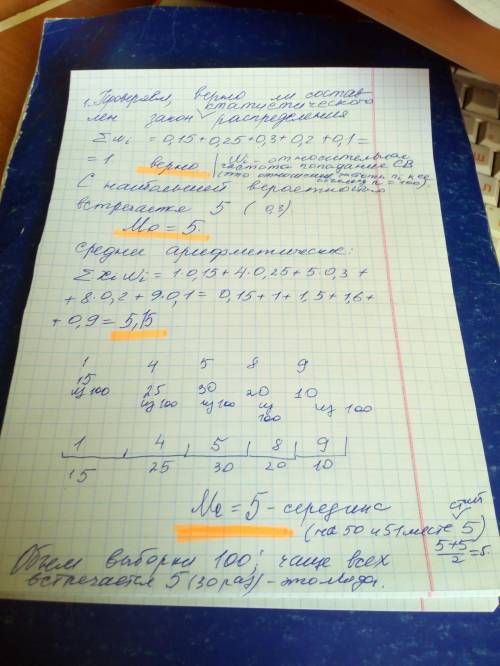 1. Проверяем, верно ли состав-
статистического
лен закон распределения
Σwi = 0,15+0,25+0,3+0,2+0,1=
= 1 верно wi относительная
частота попадания СВ
(это отношение частоты ni к ее
n = 100)
С наибольшей вероятностью
встречается 5 (0,3)
Mo = 5.
Среднее арифметическое:
Σxiwi = 1·0,15+4·0,25+5·0,3+
+8·0,2+9·0,1= 0,15+1+1,5+1,6+
+0,9= 5,15
1 4 5 8 9
15 25 30 20 10
из 100 из 100 из 100 из 100 из 100
1 4 5 8 9
15 25 30 20 10
Me = 5 - середина
стоит
(на 50 и 51 месте 5)
5+5/2=5
Объем выборки 100; чаще всех
встречается 5 (30 раз) - это мода.